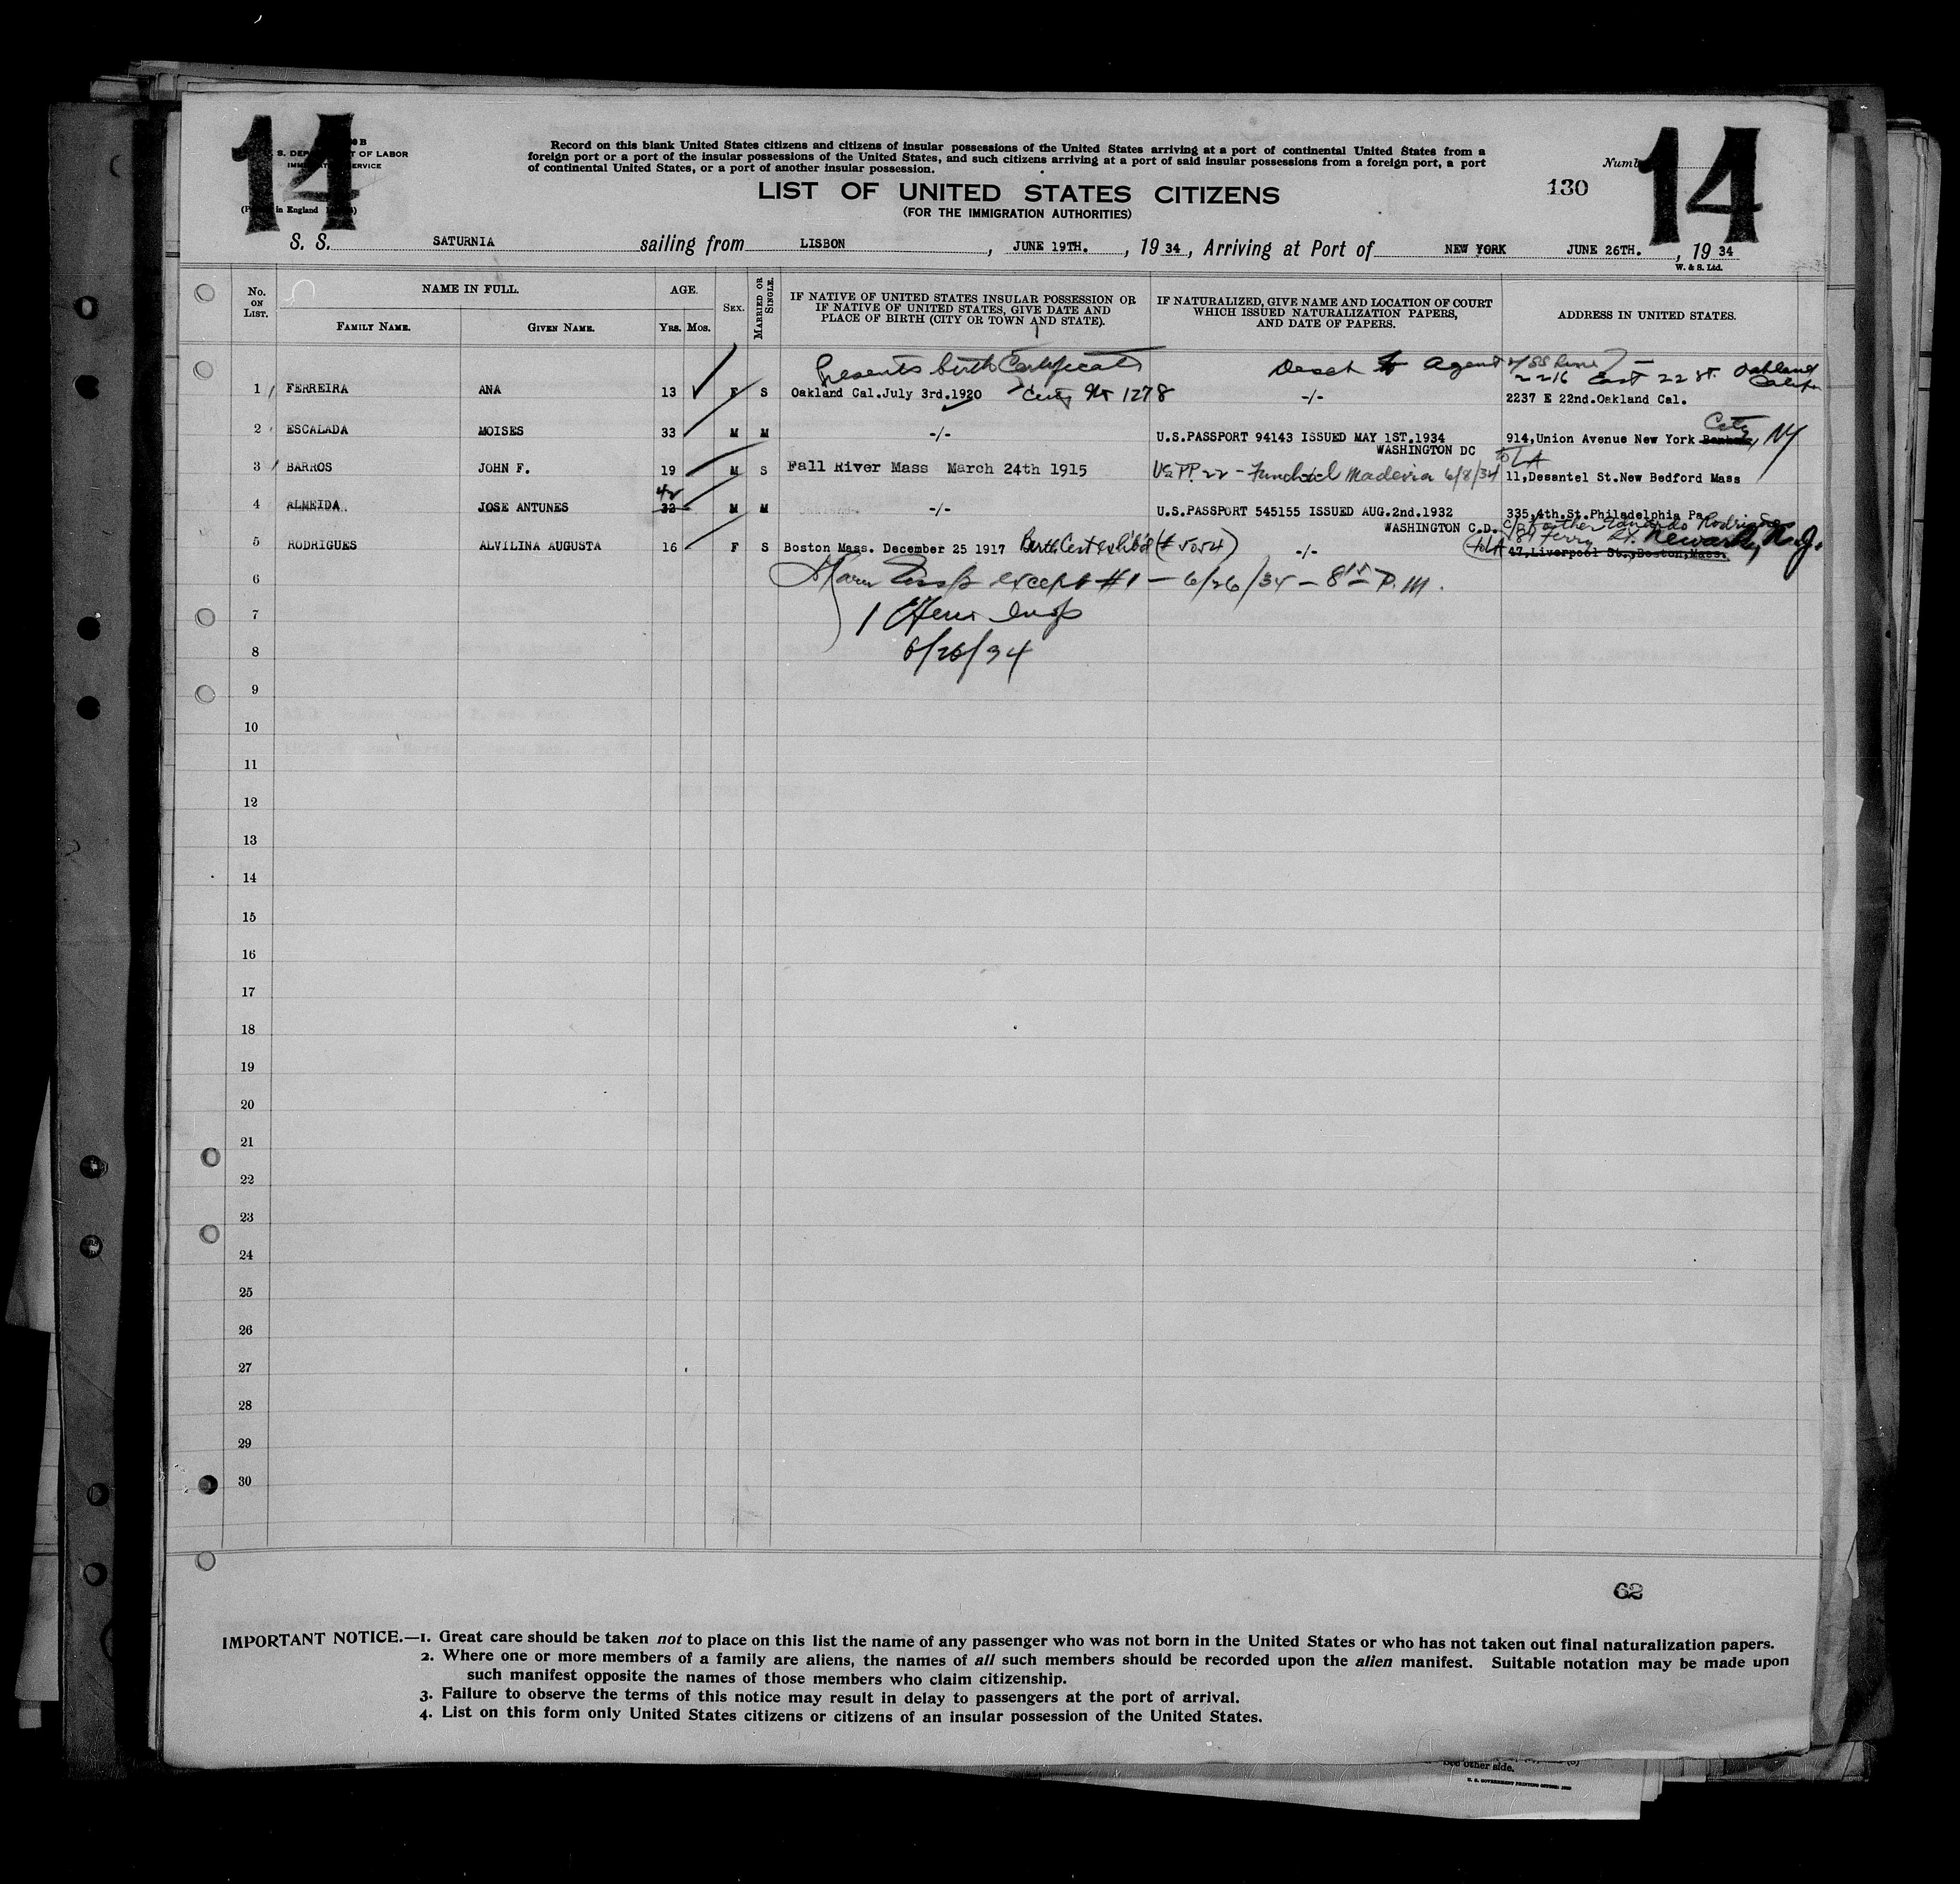 14
B
S. DEP T OF LABOR
IMM AT ERVICE
(P in England )
Record on this blank United States citizens and citizens of insular possessions of the United States arriving at a port of continental United States from a
foreign port or a port of the insular possessions of the United States, and such citizens arriving at a port of said insular possessions from a foreign port, a port
of continental United States, or a port of another insular possession.
LIST OF UNITED STATES CITIZENS
(FOR THE IMMIGRATION AUTHORITIES)
Numb
130
14
S. S. SATURNIA sailing from LISBON, JUNE 19TH., 1934, Arriving at Port of NEW YORK JUNE 26TH., 1934
W. & S. Ltd.
No. ON LIST. NAME IN FULL. AGE. SEX. MARRIED OR SINGLE. IF NATIVE OF UNITED STATES INSULAR POSSESSION OR IF NATIVE OF UNITED STATES, GIVE DATE AND PLACE OF BIRTH (CITY OR TOWN AND STATE). IF NATURALIZED, GIVE NAME AND LOCATION OF COURT WHICH ISSUED NATURALIZATION PAPERS, AND DATE OF PAPERS. ADDRESS IN UNITED STATES.
FAMILY NAME. GIVEN NAME. YRS. MOS.
Presents birth Certificate Agent
2216 East 22 St. Oakland
1 FERREIRA ANA 13 F S Oakland Cal.July 3rd.1920 1278 -/- 2237 E 22nd.Oakland Cal.
City, NY
2 ESCALADA MOISES 33 M M -/- U.S.PASSPORT 94143 ISSUED MAY 1ST.1934 914,Union Avenue New York
WASHINGTON DC
3 BARROS JOHN F. 19 M S Fall River Mass March 24th 1915 US PP. 22 - Funchal Madeira 6/8/34 11,Desantel St.New Bedford Mass
42
4 ALMEIDA JOSE ANTUNES 32 M M -/- U.S.PASSPORT 545155 ISSUED AUG.2nd.1932 335,4th.St.Philadelphia Pa
WASHINGTON C.D. father Eduardo Rodrigues
Ferry St. Newark, N.J.
5 RODRIGUES ALVILINA AUGUSTA 16 F S Boston Mass. December 25 1917 Birth Cert exhib'd (# 5054) -/- 47,Liverpool St.,Boston,Mass.
6 Insp except #1 - 6/26/34 - 8 15 P.M.
7 1 Insp
8 6/26/34
9
10
11
12
13
14
15
16
17
18
19
20
21
22
23
24
25
26
27
28
29
30
62
IMPORTANT NOTICE.—1. Great care should be taken not to place on this list the name of any passenger who was not born in the United States or who has not taken out final naturalization papers.
2. Where one or more members of a family are aliens, the names of all such members should be recorded upon the alien manifest. Suitable notation may be made upon
such manifest opposite the names of those members who claim citizenship.
3. Failure to observe the terms of this notice may result in delay to passengers at the port of arrival.
4. List on this form only United States citizens or citizens of an insular possession of the United States.
See other side.
U. S. GOVERNMENT PRINTING OFFICE